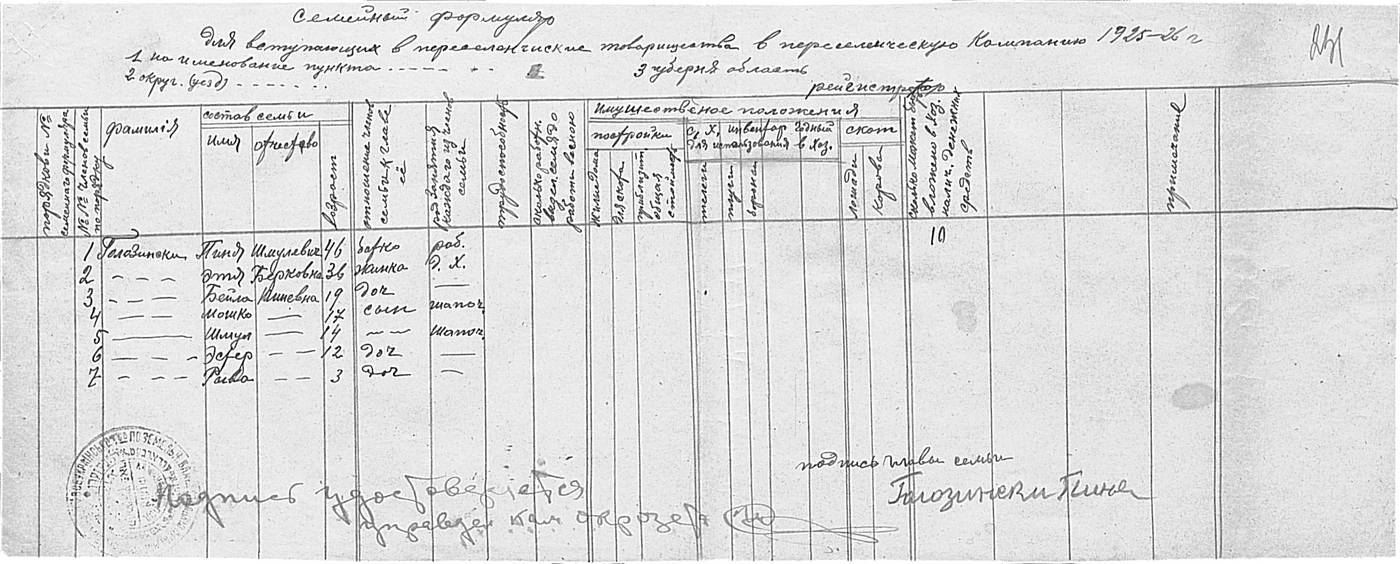 семейный формуляр
для вступающих в переселенчиские товарищества в переселенческую Компанию 1925-26 г
1 на именование пункта
3 губерня область
2 округ. (уезд)
рейгистратор
порядковы №
семейнаго формуляра
№ № членов семьи
по порядку
фамилія
состав семьи
имя
отчество
возраст
отношение членов
семьи к главе
её
род занятия
каждаго из членов
семьи
трудоспособност
сколько работн.
выдел. семя до
в
работы весною
имущественое положения
постройки
жилые дома
для скота
приблизит
общая
стоймост
с. х. инвентар годный
для использования в хоз.
телеги
плуги
бороны
скот
лошади
корова
сколько может быт
вложено в хоз.
налич. денежных
средств
примечание
1 Голозински Пиня Шмулевич 46 батко раб. 10
2 Этя Берковна 36 жинка д. х.
3 Бейла Пиневна 19 доч
4 Мошко 17 сын шапоч.
5 Шмул 14 шапоч.
6 Эсфер 12 доч
7 3 доч
подпись главы семьи
Голозински Пиня
Подпись удостоверяется